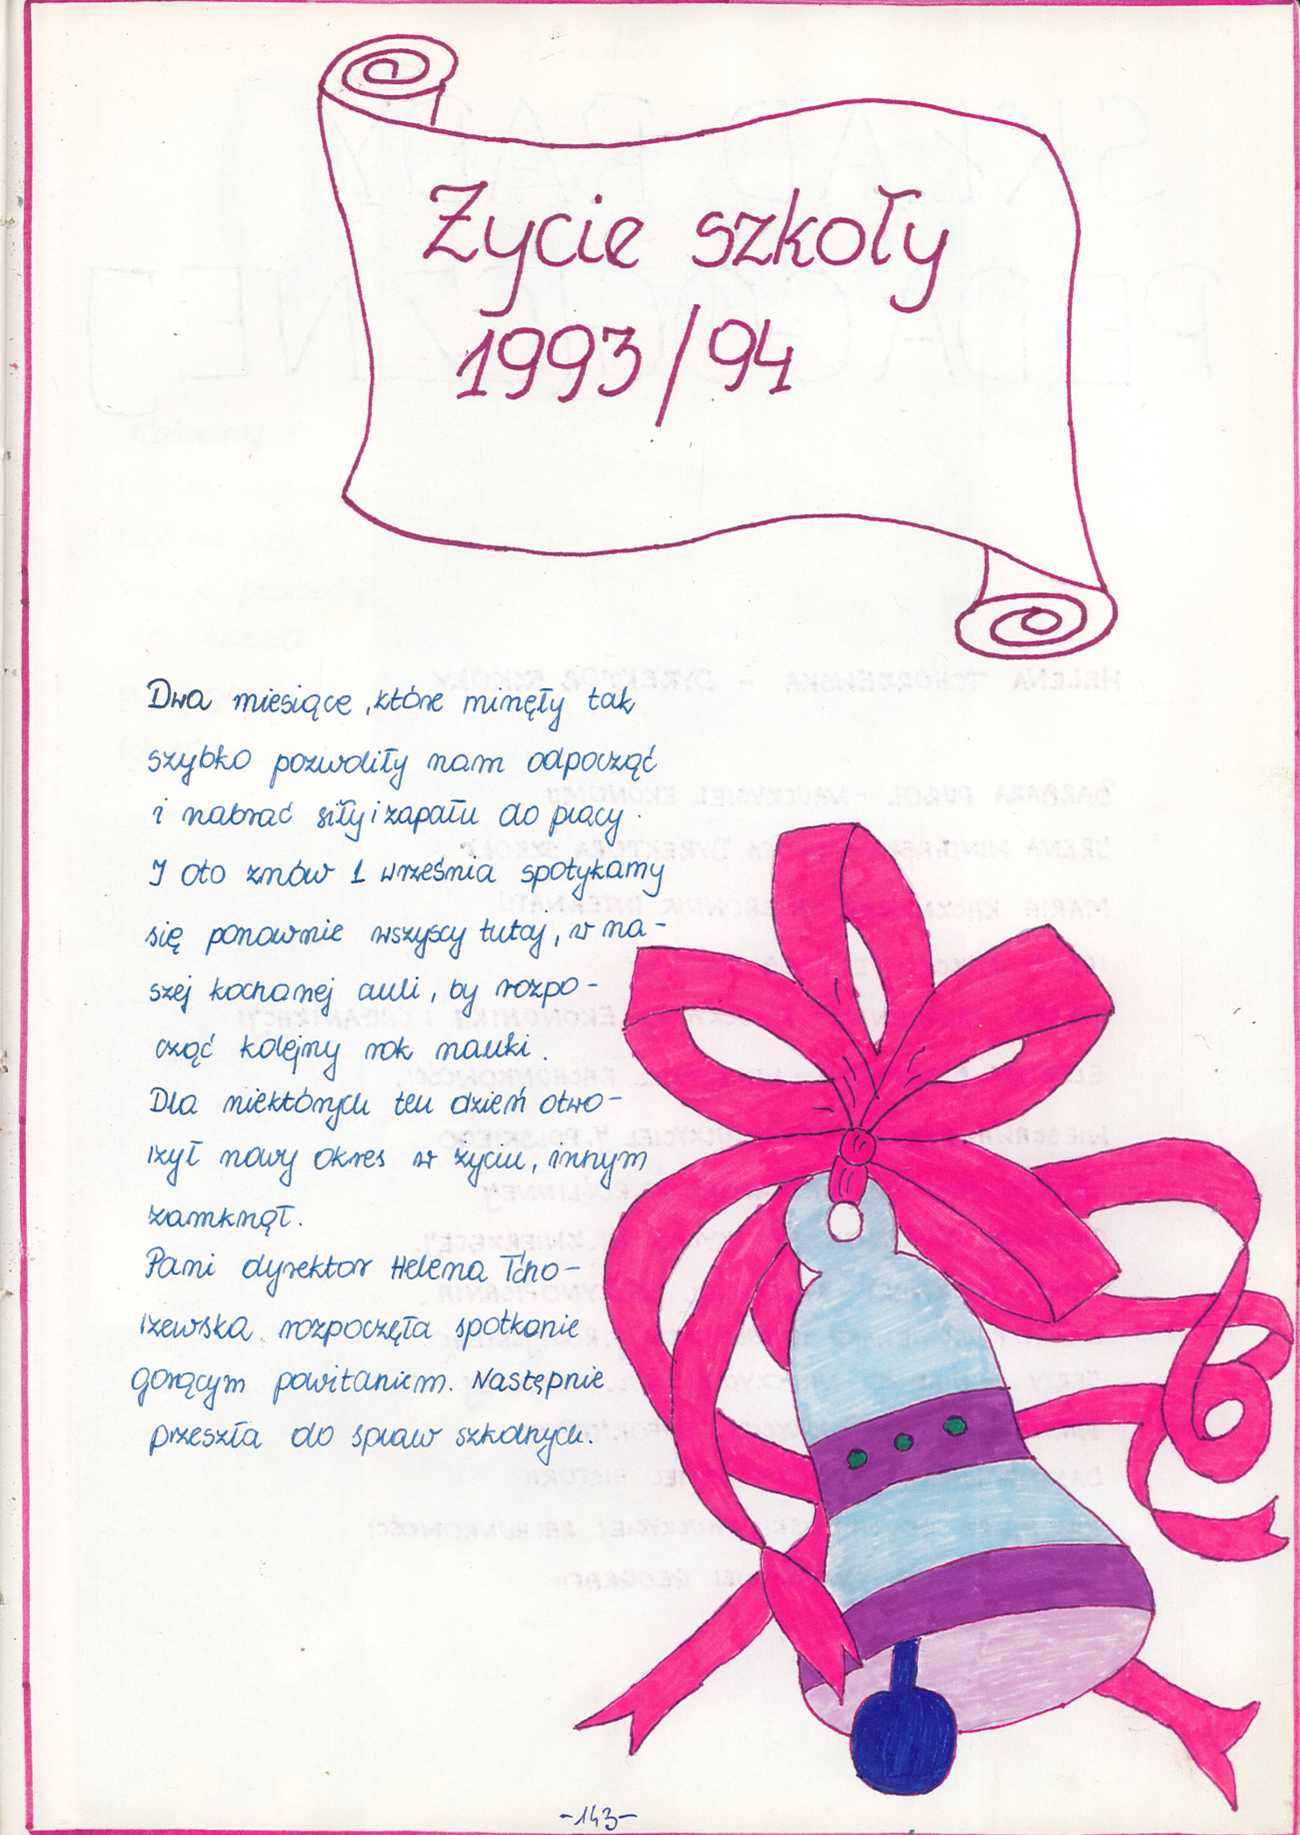 Życie szkoły
1993/94
Dwa miesiące, które minęły tak
szybko pozwoliły nam odpocząć
i nabrać siły i zapału do pracy.
I oto znów 1 września spotykamy
się ponownie wszyscy tutaj, w na-
szej kochanej auli, by rozpo-
cząć kolejny rok nauki.
Dla niektórych ten dzień otwo-
rzył nowy okres w życiu, innym
zamknął.
Pani dyrektor Helena Tcho-
rzewska rozpoczęła spotkanie
gorącym powitaniem. Następnie
przeszła do spraw szkolnych.
-143-